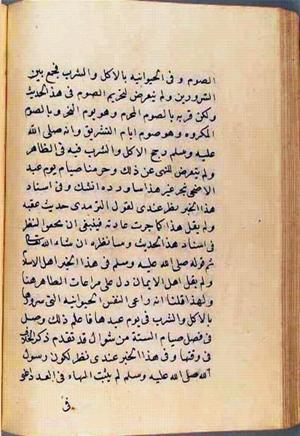 الصوم وفى الحيوانيه بالاكل والمشرب فجمع بين
السرورين ولم يتعرض لتحريم الصوم فى هذا الحديث
ولكن قرنه بالصوم المحرم وهو يوم النحر وبالصوم
المكروه وهو صوم ايام التشريق وانه صلى الله
عليه وسلم رجح الاكل والشرب فيه فى الظاهر
ولم يتعرض للنهى عن ذلك وحرمنا صيام يوم عيد
الاضحى بخبر غير هذا ساورده ان شاء الله وفى اسناد
هذا الخبر نظر عندى لقول الترمذى حديث عقبه
ولم يقل هذا كما جرت عادته فينبغى ان يحقق النظر
فى اسناد هذا الحديث وسانظره ان شاء الله تعالى
ثم قوله صلى الله عليه وسلم فى هذا الخبر اهل الاسلام
ولم يقل اهل الايمان دل على مراعات الظاهر هنا
ولهذا قلنا انه راعى النفس الحيوانيه التى سرورها
بالاكل والشرب فى يوم عيدها فاعلم ذلك وصل
فى فصل صيام الستة من شوال قد تقدم ذكر الخبر
فى وقتها وفى هذا الخبر عندى نظر لكون رسول
الله صلى الله عليه وسلم لم يثبت الهاء فى العدد اعنى
فى